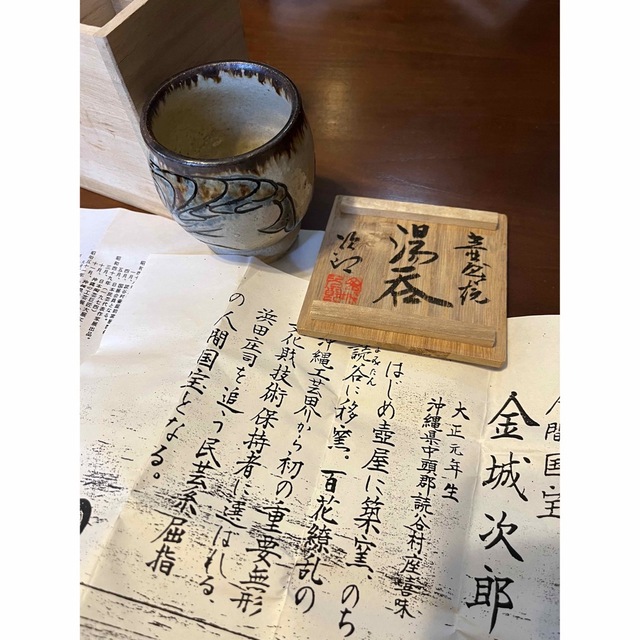 壷屋焼
湯呑
次郎
人間国宝
金城次郎
大正元年生
沖縄県中頭郡読谷村座喜味
はじめ壺屋に築窯、のち
読谷に移窯、百花繚乱の
沖縄工芸界から初の重要無形
文化財技術保持者に選ばれる、
浜田庄司を追う民芸系屈指
の人間国宝となる。